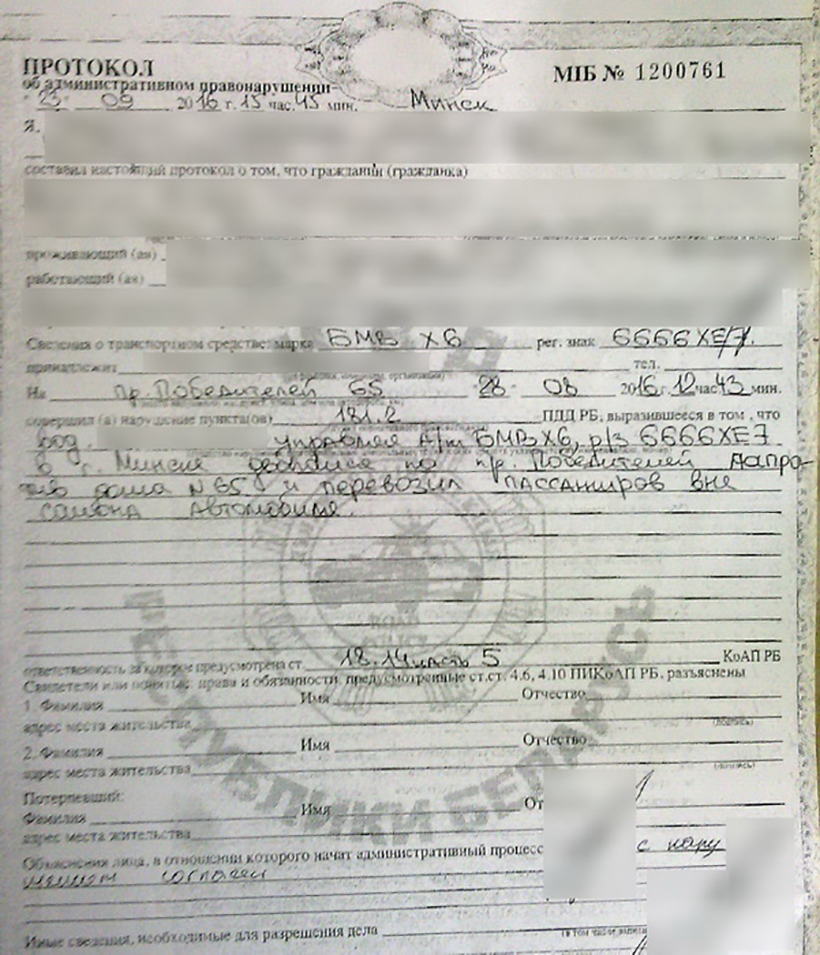 ПРОТОКОЛ
об административном правонарушении
МІБ № 1200761
23 09 2016 г. 15 час. 45 мин. Минск
Я,
составил настоящий протокол о том, что гражданин (гражданка)
проживающий (ая)
работающий (ая)
Сведения о транспортном средстве: марка БМВ Х6 рег. знак 6666ХЕ/7.
принадлежит тел.
На пр. Победителей 65 28 08 2016 г. 12 час 43 мин.
совершил (а) нарушение пункта(ов) 181.2 ПДД РБ, выразившееся в том, что
вод. управляя А/м БМВ Х6, р/з 6666ХЕ7
в г. Минске двигался по пр. Победителей напро-
тив дома N65 и перевозил пассажиров вне
салона автомобиля.
РЕСПУБЛИКИ БЕЛАРУСЬ
ответственность за которое предусмотрена ст. 18.14 часть 5 КоАП РБ
Свидетели или понятые: права и обязанности, предусмотренные ст.ст. 4.6, 4.10 ПИКоАП РБ, разъяснены
1. Фамилия Имя Отчество
адрес места жительства (подпись)
2. Фамилия Имя Отчество
адрес места жительства (подпись)
Потерпевший:
Фамилия Имя От
адрес места жительства
Объяснения лица, в отношении которого начат административный процесс с нару
шением согласен
Иные сведения, необходимые для разрешения дела